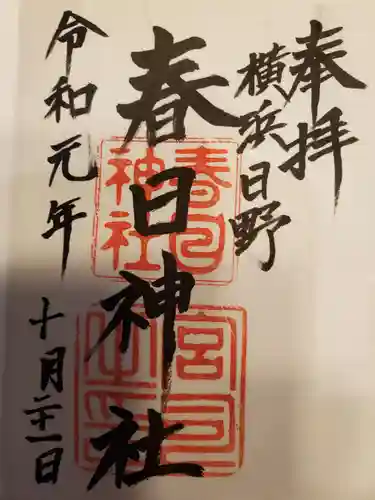 奉拝
横浜日野
春日神社
春日神社
宮司之印
令和元年
十月二十一日